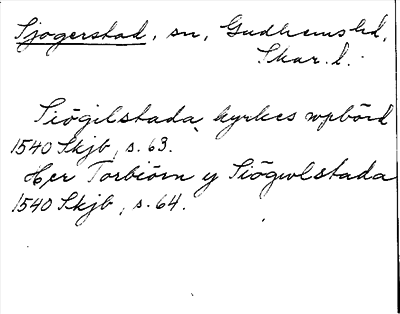 Sjogerstad, sn, Gudhems hd,
Skar. l.
Siögilstada kyrkes wpbörd
1540 Skjb, s. 63.
Her Torbiörn y Siögwlstada
1540 Skjb, s. 64.